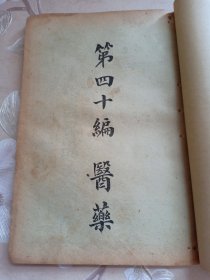 第四十編 醫藥